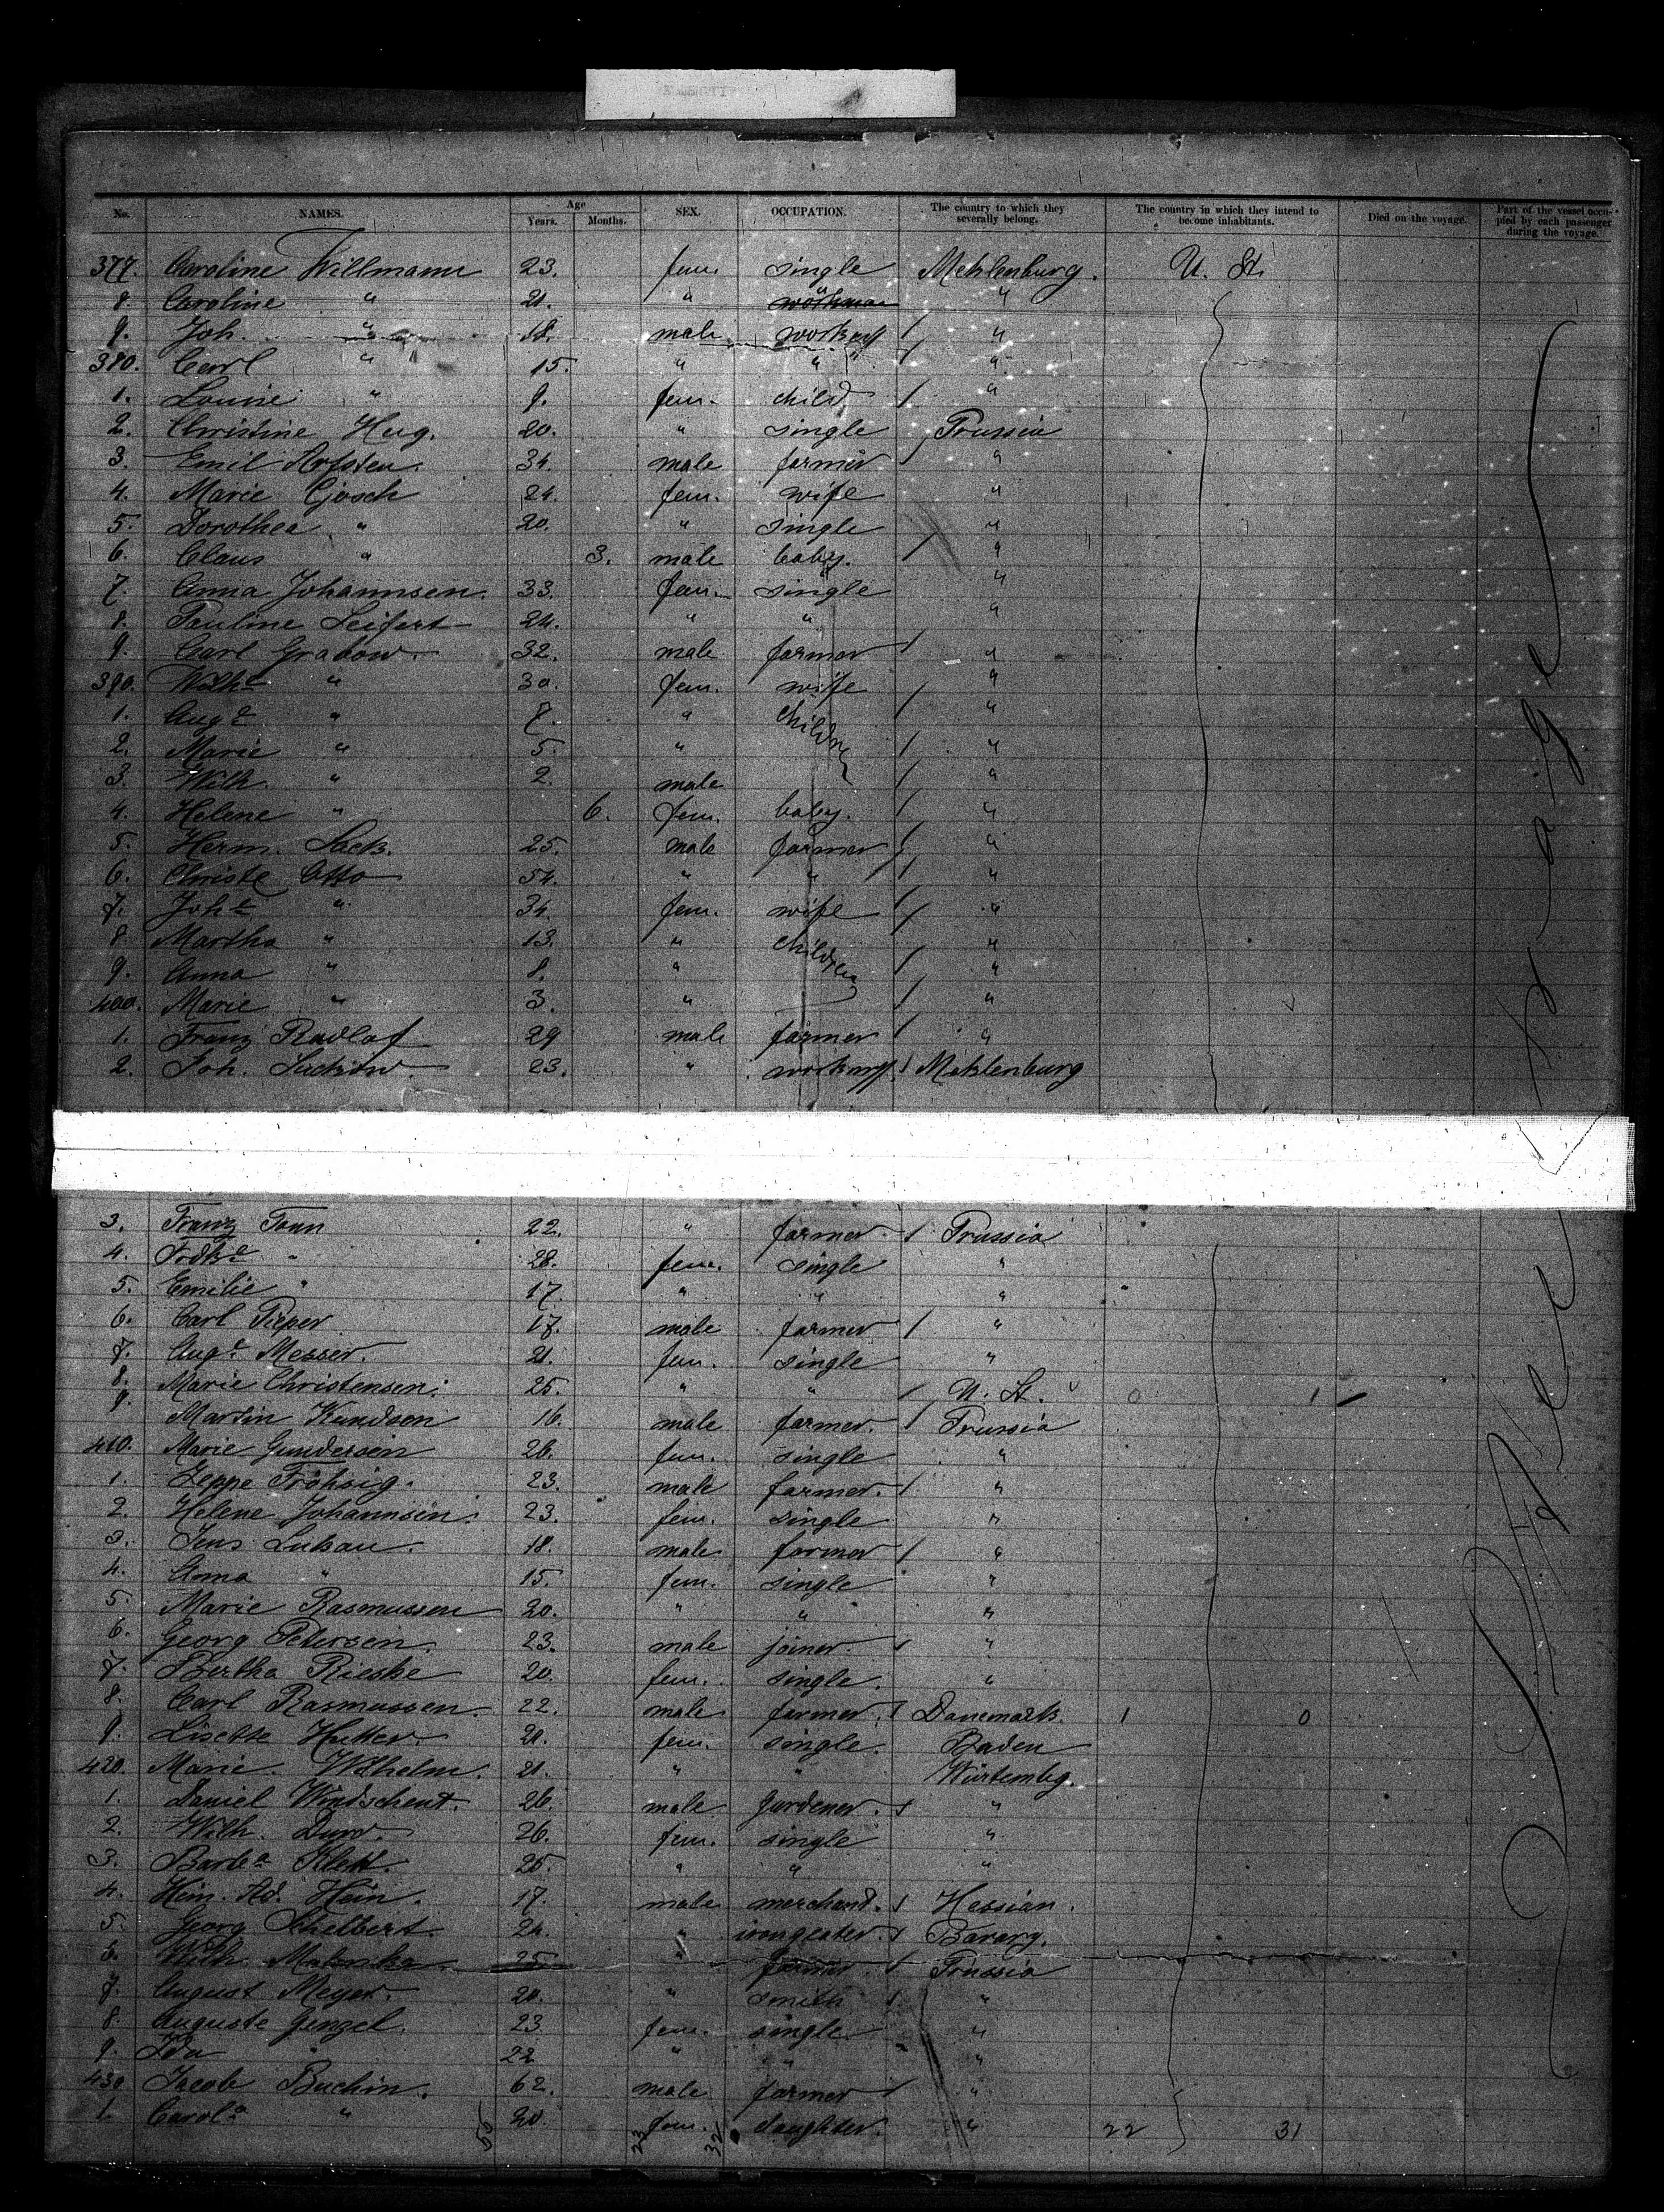 No. NAMES. Age Years. Months. SEX. OCCUPATION. The country to which they severally belong. The country in which they intend to become inhabitants. Died on the voyage. Part of the vessel occupied by each passenger during the voyage.
377. Caroline Willmann 23. fem. single Meklenburg. U. St.
8. Caroline " 21. " workman "
9. Joh. " 18. male "
380. Carl " 15. " " "
1. Louise " 9. fem. child "
2. Christine Hug. 20. " single Prussia
3. Emil Arfsten. 34. male farmer "
4. Marie Gosch 24. fem. wife "
5. Dorothea " 20. " single "
6. Claus " 3. male baby. "
7. Anna Johannsen. 33. fem. single "
8. Pauline Seifert 24. " " "
9. Carl Grabow. 32. male farmer "
390. Wilhe " 30. fem. wife "
1. Auge " 7. " children "
2. Marie " 5. " "
3. Wilh. " 2. male "
4. Helene " 6. fem. baby. "
5. Herm. Sack. 25. male farmer "
6. Christe Otto 54. " " "
7. Johe " 34. fem. wife "
8. Martha " 13. " children "
9. Anna " 8. " "
400. Marie " 3. " "
1. Franz Radlof 29 male farmer "
2. Joh. Suckow. 23. " Meklenburg
3. Franz Tonn 22. " farmer Prussia
4. Fredke " 28. fem. single "
5. Emilie " 17. " " "
6. Carl Pieper 17. male farmer "
7. Auge Messer. 21. fem. single "
8. Marie Christensen. 25. " " U. St. 0 1
9. Martin Kundsen 16. male farmer. Prussia
410. Marie Gundersen 26. fem. single "
1. Jeppe Fröhsig. 23. male farmer. "
2. Helene Johannsen. 23. fem. single "
3. Jens Lukau. 18. male farmer "
4. Anna " 15. fem. single "
5. Marie Rasmussen 20. " " "
6. Georg Petersen. 23. male joiner. "
7. Bertha Rieske 20. fem. single. "
8. Carl Rasmussen. 22. male farmer. Danemark. 1 0
9. Lisette Hutter. 21. fem. single. Baden
420. Marie. Wilhelm. 21. " " Würtembg.
1. Daniel Windschent. 26. male gardener. "
2. Wilh. 26. fem. single "
3. Barba Klett. 25. " " "
4. Hein. Ad. Hein. 17. male merchand. Hessian.
5. Georg Schelbert. 24. " Bavarg.
6. Wilh. 25. " farmer. Prussia
7. August Meyer. 20. " smith "
8. Auguste Genzel. 23 fem. single. "
9. Ida " 22 " " "
430 Jacob Buchin. 62. male farmer "
1. Carola " 20. fem. daughter. " 22 31
55 23 32
Steerage